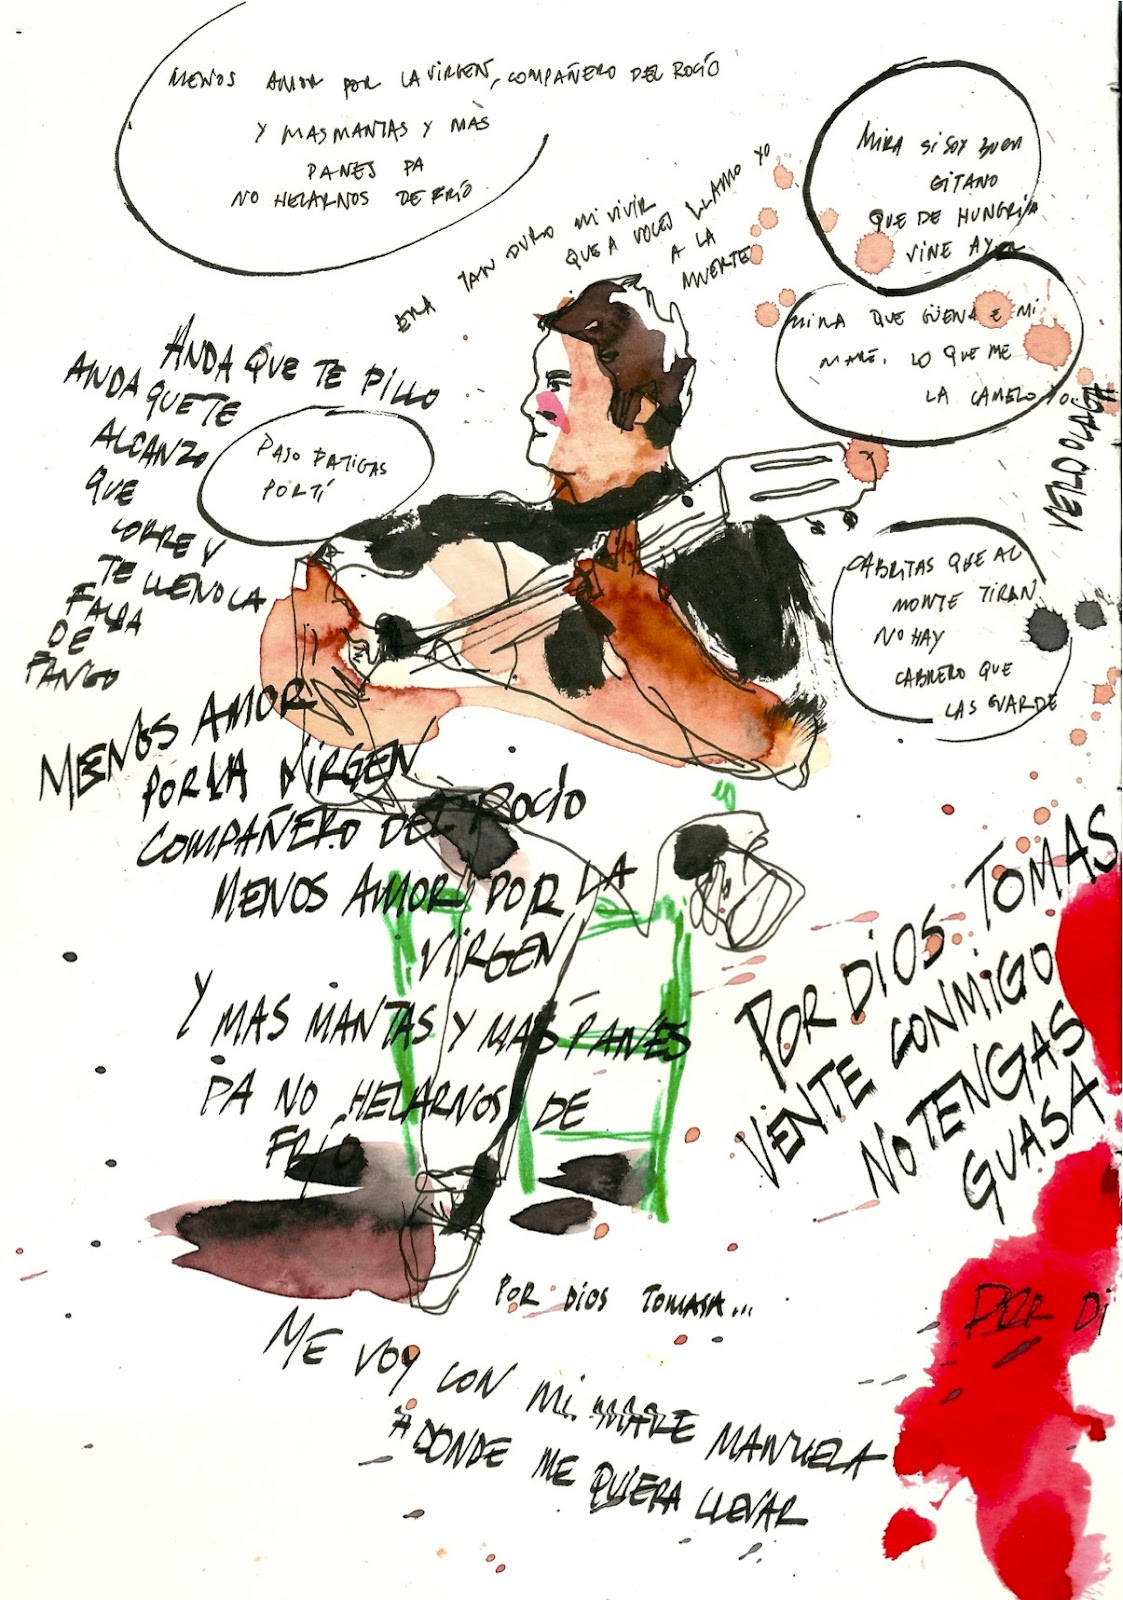 MENOS AMOR POR LA VIRGEN, COMPAÑERO DEL ROCÍO
Y MAS MANTAS Y MAS
PANES PA
NO HELARNOS DE FRÍO
ERA TAN DURO MI VIVIR
QUE A VOCES LLAMO YO
A LA
MUERTE
MIRA SI SOY BUEN
GITANO
QUE DE HUNGRIA
VINE AYER
MIRA QUE GÜENA E MI
MARE, LO QUE ME
LA CAMELO YO
VERDOLAGA
ANDA QUE TE PILLO
ANDA QUE TE
ALCANZO
QUE
CORRE Y
TE LLENO LA
FALDA
DE
FANGO
PASO FATIGAS
POR TÍ
CABRITAS QUE AL
MONTE TIRAN
NO HAY
CABRERO QUE
LAS GUARDE
MENOS AMOR
POR LA VIRGEN
COMPAÑERO DEL ROCÍO
MENOS AMOR POR LA
VIRGEN
Y MAS MANTAS Y MAS PANES
PA NO HELARNOS DE
FRÍO
POR DIOS TOMAS
VENTE CONMIGO
NO TENGAS
GUASA
POR DIOS TOMASA...
POR DI
ME VOY CON MI MARE MANUELA
A DONDE ME QUIERA LLEVAR